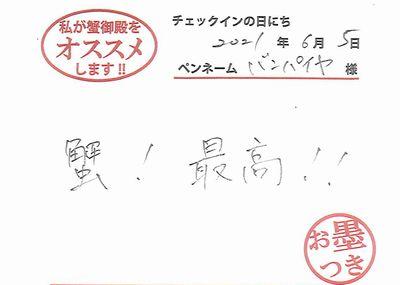 私が蟹御殿を
オススメ
します!!
チェックインの日にち
2021 年 6 月 5 日
ペンネーム バンパイヤ 様
蟹! 最高!!
お墨
つき